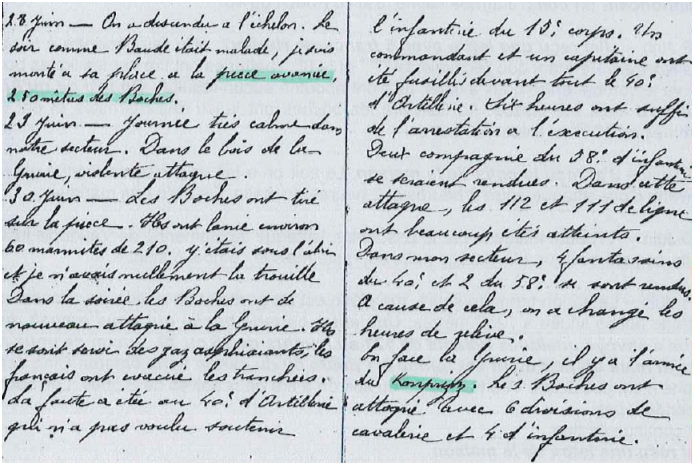 28 Juin — On a descendu a l'échelon. Le
soir comme Baude était malade, je suis
monté a sa place a la piece avancée,
250 mètres des Boches.
29 Juin — Journée très calme dans
notre secteur. Dans le bois de la
Grurie, violente attaque.
30 Juin — Les Boches ont tiré
sur la piece. Ils ont lancé environ
60 marmites de 210. y étais sous l'abri
et je n'avais nullement la trouille
Dans la soirée les Boches ont de
nouveau attaqué à la Gruerie. Ils
se sont servi des gaz asphixiants, les
français ont évacué les tranchées.
La faute a été au 40e d'Artillerie
qui n'a pas voulu soutenir
l'infanterie du 15e corps. Un
commandant et un capitaine ont
été fusillés devant tout le 40e
d'Artillerie. Six heures ont suffi
de l'arrestation a l'éxécution.
Deux compagnie du 58e d'infanterie
se seraient rendues. Dans cette
attaque, les 112 et 111 de ligne
ont beaucoup étés atteints.
Dans mon secteur, 4 fantassins
du 40e et 2 du 58e se sont rendus.
A cause de cela, on a changé les
heures de relève.
En face la Gruerie, il y a l'armée
du Konprinz. Les Boches ont
attaqué avec 6 divisions de
cavalerie et 4 d'infanterie.